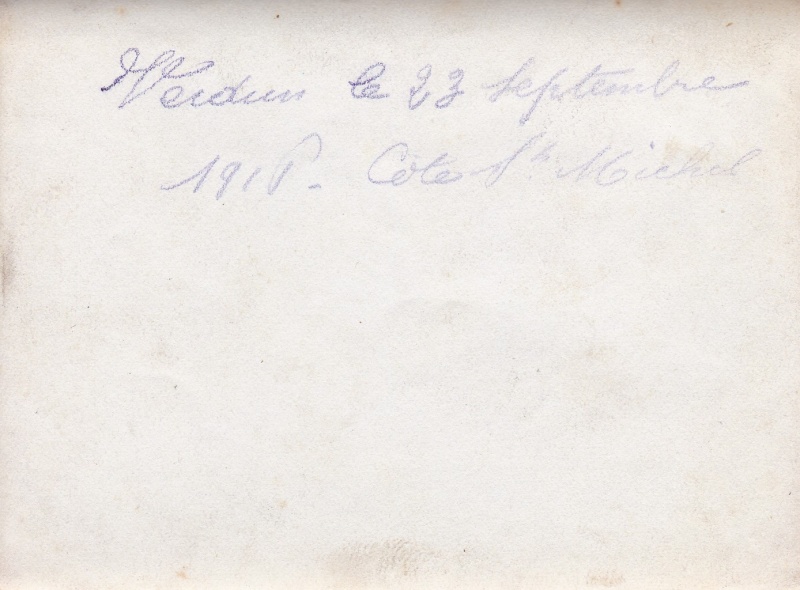 Verdun le 23 Septembre
1918 - Côte St Michel